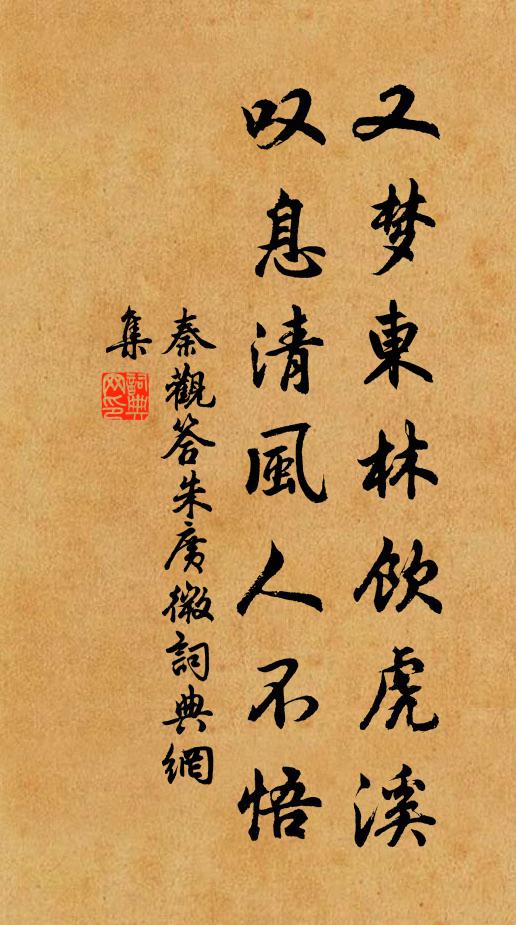 又梦東林飲虎溪
叹息清風人不悟
秦觀答朱廣微詞典網
集
詞典
网印